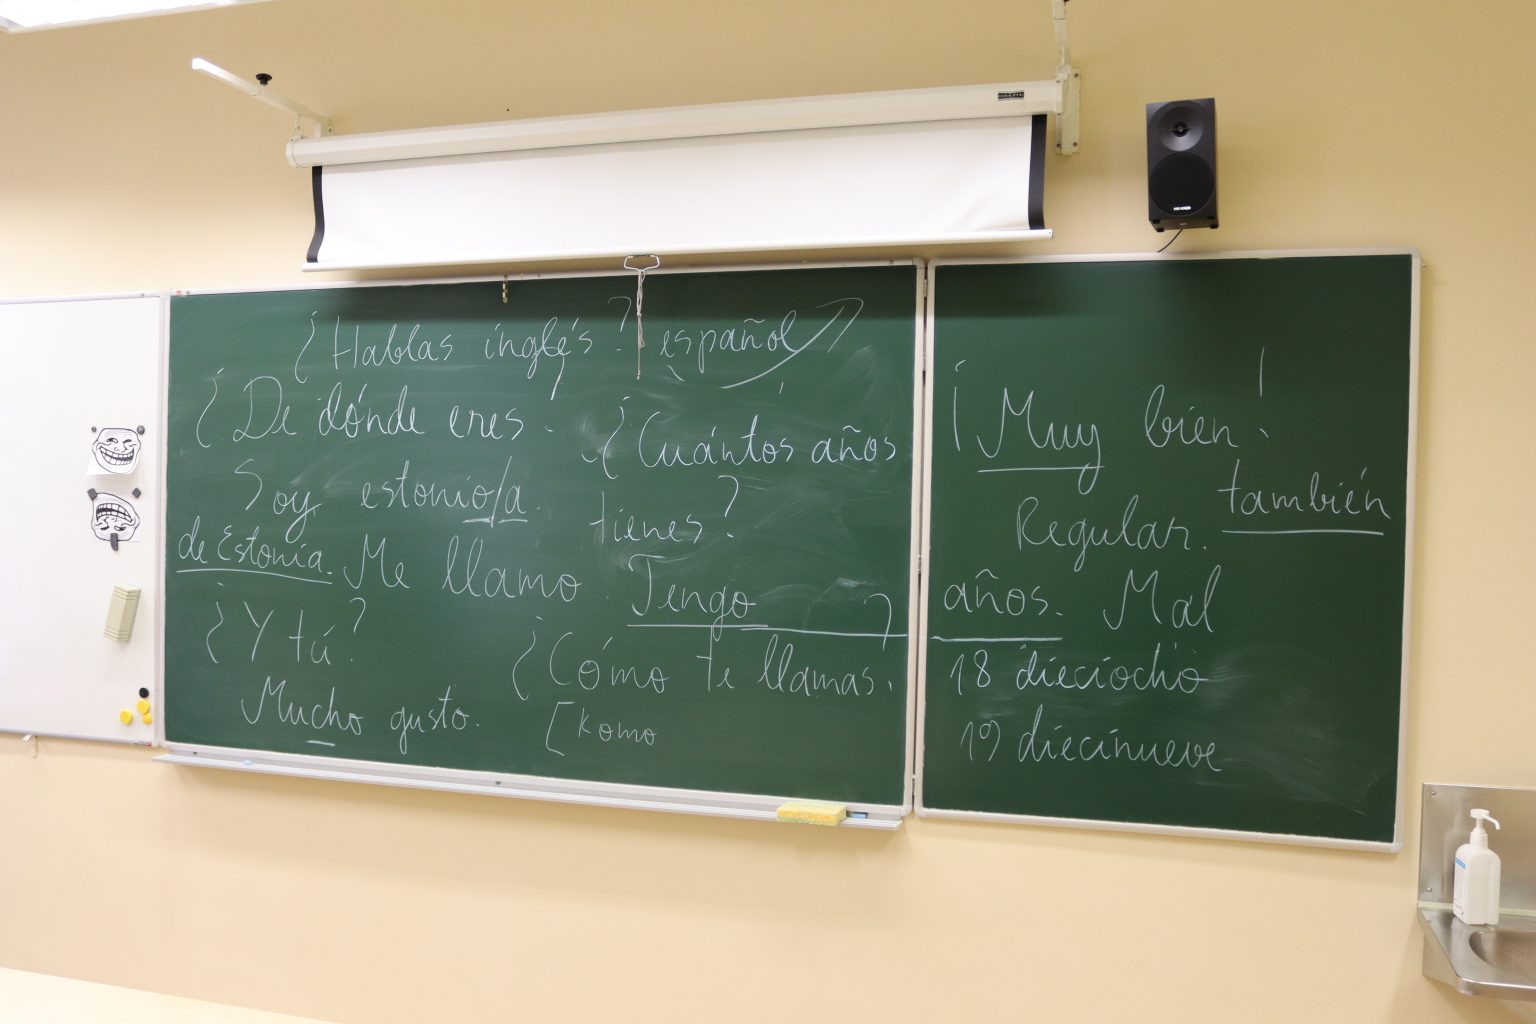 ¿Hablas inglés? español?
¿De dónde eres?
¿Cuántos años
tienes?
Soy estonio/a.
de Estonia. Me llamo
Tengo ____ años.
¿Y tú?
¿Cómo te llamas?
Mucho gusto.
[komo
¡Muy bien!
también
Regular.
Mal
18 dieciocho
19 diecinueve